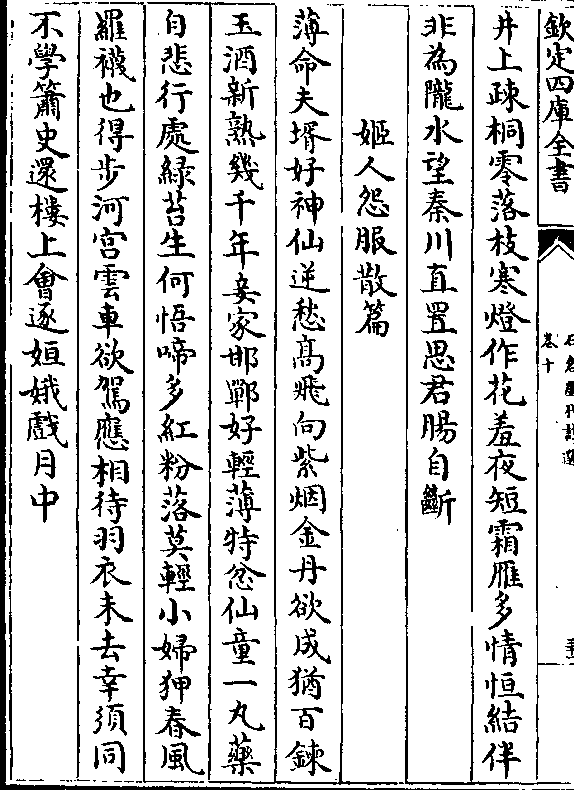 欽定四庫全書
石倉歷代詩選
卷十
井上疎桐零落枝寒燈作花羞夜短霜雁多情恒結伴
非為隴水望秦川直置思君腸自斷
姬人怨服散篇
薄命夫壻好神仙逆愁髙飛向紫烟金丹欲成猶百鍊
玉酒新熟幾千年妾家邯鄲好輕薄特忿仙童一丸藥
自悲行處緑苔生何悟啼多紅粉落莫輕小婦狎春風
羅襪也得步河宫雲車欲駕應相待羽衣未去幸須同
不學簫史還樓上會逐姮娥戲月中